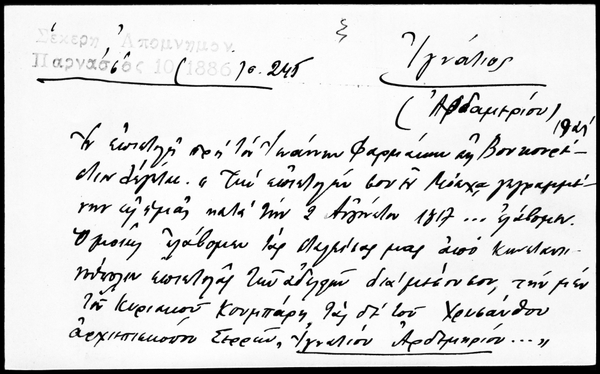 ξ
Σέκερη Ἀπομνημον.
Παρνασσός 10 (1886) σ. 245
Ἰγνάτιος
(Ἀρδαμερίου)
Ἐν ἐπιστολῇ πρὸς τὸν Ἰωάννην Φαρμάκην εἰς Βουκουρέ-
στιον λέγεται. « Τὴν ἐπιστολήν σου ἐν Μόσχᾳ γεγραμμέ-
νην εἰς ἡμᾶς κατὰ τὴν 2 Αὐγούστου 1817 ... ἐλάβομεν.
Ὁμοίως ἐλάβομεν τὰς σταλείσας μας ἀπὸ Κωνσταντι-
νούπολιν ἐπιστολὰς τῶν ἀδελφῶν διὰ μέσου σου, τὴν μὲν
τοῦ Κυριακοῦ Κουμπάρη, τὰς δὲ τοῦ Χρυσάνθου
ἀρχιεπισκόπου Σερρῶν, Ἰγνατίου Ἀρδαμερίου ... »